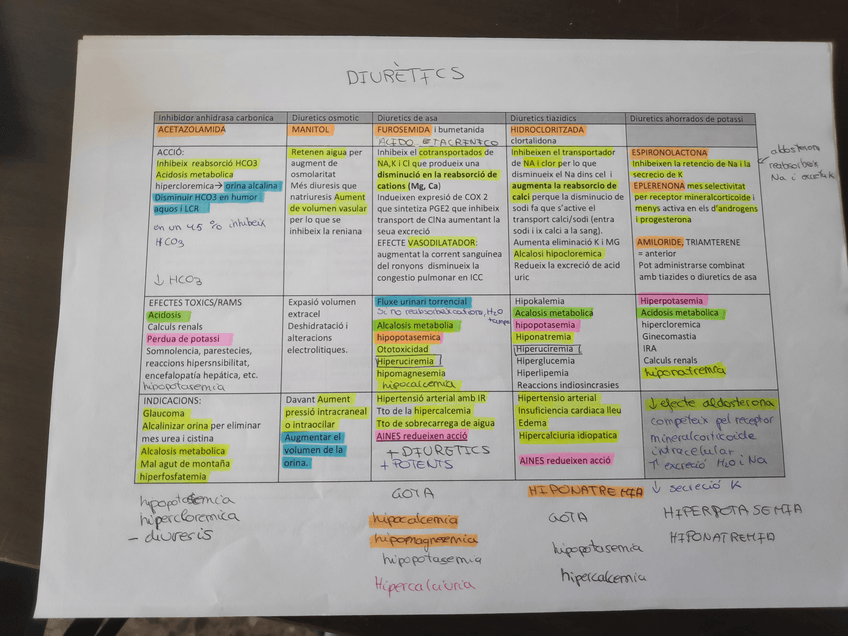 DIURÈTICS
Inhibidor anhidrasa carbonica
ACETAZOLAMIDA
ACCIÓ:
Inhibeix reabsorció HCO3
Acidosis metabolica
hipercloremica→ orina alcalina
Disminuir HCO3 en humor
aquos i LCR
en un 45 % inhibeix
HCO3
↓ HCO3
EFECTES TOXICS/RAMS
Acidosis
Calculs renals
Perdua de potassi
Somnolencia, parestecies,
reaccions hipersnsibilitat,
encefalopatia hepática, etc.
hipopotasemia
INDICACIONS:
Glaucoma
Alcalinizar orina per eliminar
mes urea i cistina
Alcalosis metabolica
Mal agut de montaña
hiperfosfatemia
hipopotasemia
hipercloremica
- diuresis
Diuretics osmotic
MANITOL
Retenen aigua per
augment de
osmolaritat
Més diuresis que
natriuresis Aument
de volumen vasular
per lo que se
inhibeix la reniana
Expasió volumen
extracel
Deshidratació i
alteracions
electrolitiques.
Davant Aument
pressió intracraneal
o intraocilar
Augmentar el
volumen de la
orina.
Diuretics de asa
FUROSEMIDA i bumetanida
ACIDO ETACRINICO
Inhibeix el cotransportados de
NA,K i Cl que produeix una
disminució en la reabsorció de
cations (Mg, Ca)
Indueixen expresió de COX 2
que sintetiza PGE2 que inhibeix
transport de ClNa aumentant la
seua excreció
EFECTE VASODILATADOR:
augmentat la corrent sanguínea
del ronyons disminueix la
congestio pulmonar en ICC
Fluxe urinari torrencial
Si no reabsorbeix cations, H2O
tampoc
Alcalosis metabolia
hipopotasemica
Ototoxicidad
Hiperuciremia
hipomagnesemia
hipocalcemia
Hipertensió arterial amb IR
Tto de la hipercalcemia
Tto de sobrecarrega de aigua
AINES redueixen acció
+ DIURETICS
+ POTENTS
GOTA
hipocalcemia
hipomagnesemia
hipopotasemia
Hipercalciuria
Diuretics tiazidics
HIDROCLORITZADA
clortalidona
Inhibeixen el transportador
de NA i clor per lo que
disminueix el Na dins cel i
augmenta la reabsorcio de
calci perque la disminucio de
sodi fa que s'active el
transport calci/sodi (entra
sodi i ix calci a la sang).
Aumenta eliminació K i MG
Alcalosi hipocloremica
Redueix la excreció de acid
uric
Hipokalemia
Acalosis metabolica
hipopotasemia
Hiponatremia
Hiperuciremia
Hiperglucemia
Hiperlipemia
Reaccions indiosincrasies
Hipertensio arterial
Insuficiencia cardiaca lleu
Edema
Hipercalciuria idiopatica
AINES redueixen acció
HIPONATREMIA
GOTA
hipopotasemia
hipercalcemia
Diuretics ahorrados de potassi
ESPIRONOLACTONA
Inhibeixen la retencio de Na i la
secrecio de K
EPLERENONA mes selectivitat
per receptor mineralcorticoide i
menys activa en els d'androgens
i progesterona
AMILORIDE, TRIAMTERENE
= anterior
Pot administrarse combinat
amb tiazides o diuretics de asa
aldosterona
reabsorbeix
Na i excreta K
Hiperpotasemia
Acidosis metabolica
hipercloremica
Ginecomastia
IRA
Calculs renals
hiponatremia
↓ efecte aldosterona
competeix pel receptor
mineralcorticoide
intracelular
↑ excreció H2O i Na
↓ secreció K
HIPERPOTASEMIA
HIPONATREMIA